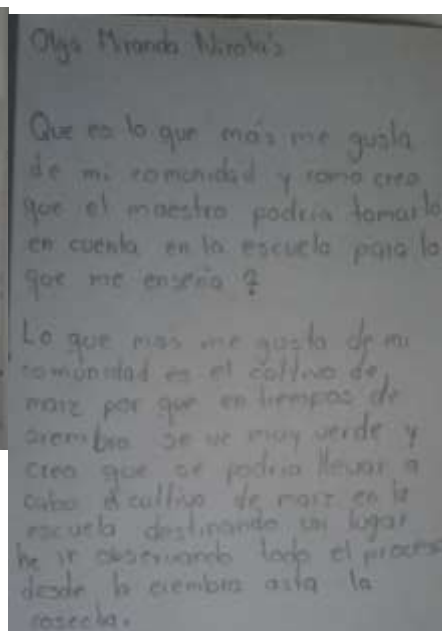 Olga Miranda Nicolás
Que es lo que más me gusta
de mi comunidad y como creo
que el maestro podria tomarlo
en cuenta en la escuela para lo
que me enseña ?
Lo que mas me gusta de mi
comunidad es el cultivo de
maiz por que en tiempos de
siembra se ve muy verde y
creo que se podria llevar a
cabo el cultivo de maiz en la
escuela destinando un lugar
he ir observando todo el proceso
desde la ciembra asta la
cosecha.